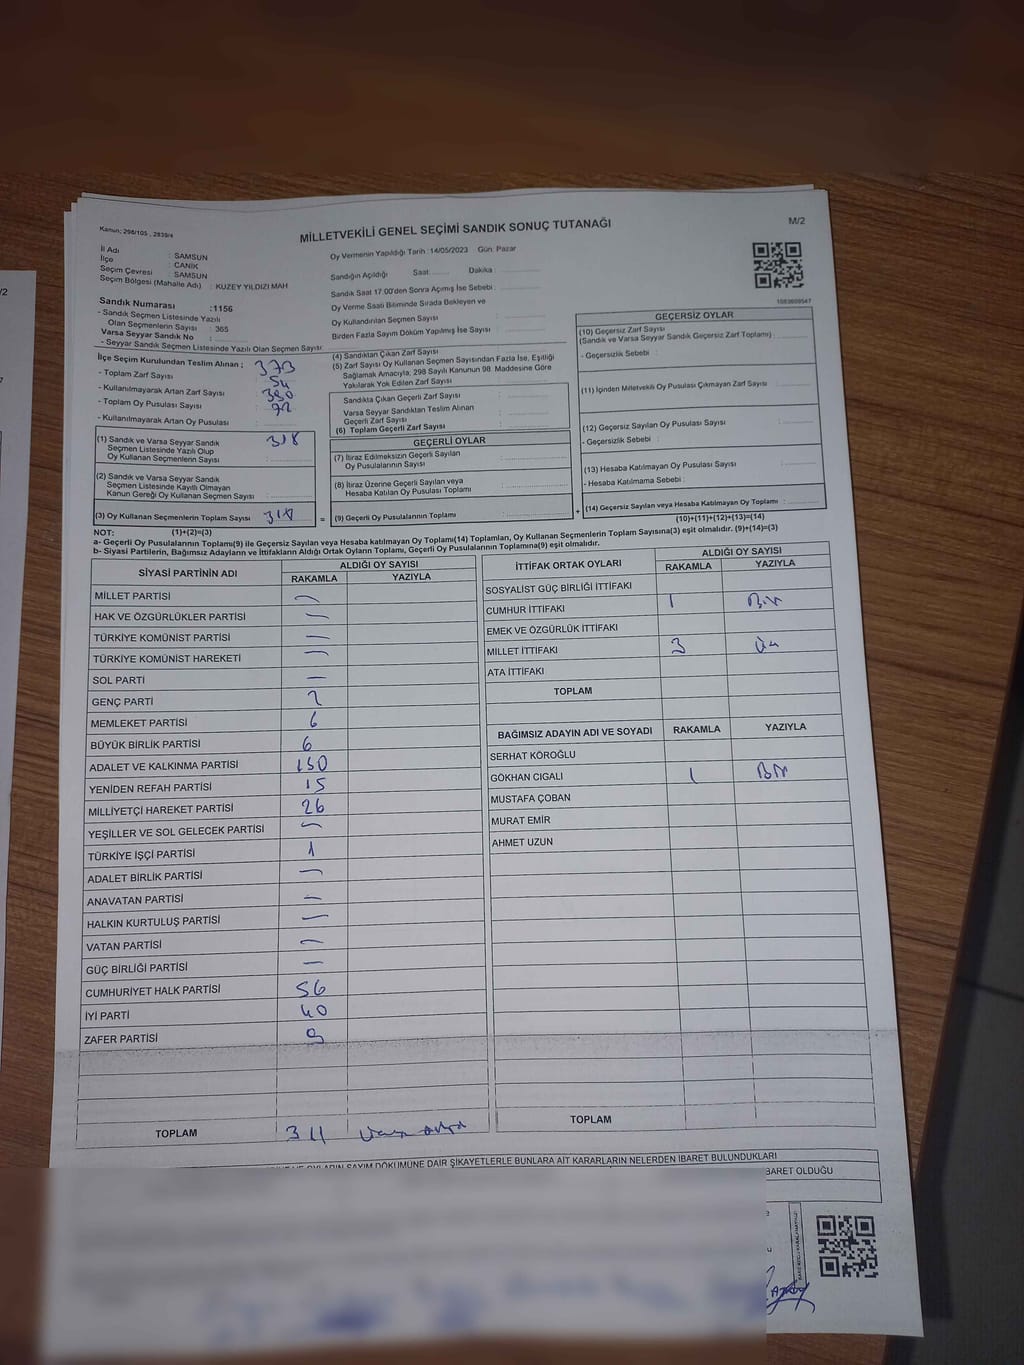 Kanun: 298/105 , 2839/4
MİLLETVEKİLİ GENEL SEÇİMİ SANDIK SONUÇ TUTANAĞI
M/2
İl Adı : SAMSUN
İlçe : CANİK
Seçim Çevresi : SAMSUN
Seçim Bölgesi (Mahalle Adı) : KUZEY YILDIZI MAH
Sandık Numarası :1156
- Sandık Seçmen Listesinde Yazılı
Olan Seçmenlerin Sayısı : 365
Varsa Seyyar Sandık No :
- Seyyar Sandık Seçmen Listesinde Yazılı Olan Seçmen Sayısı:
İlçe Seçim Kurulundan Teslim Alınan ;
- Toplam Zarf Sayısı : 373
- Kullanılmayarak Artan Zarf Sayısı : 54
- Toplam Oy Pusulası Sayısı : 380
- Kullanılmayarak Artan Oy Pusulası :
(1) Sandık ve Varsa Seyyar Sandık
Seçmen Listesinde Yazılı Olup
Oy Kullanan Seçmenlerin Sayısı : 318
(2) Sandık ve Varsa Seyyar Sandık
Seçmen Listesinde Kayıtlı Olmayan
Kanun Gereği Oy Kullanan Seçmen Sayısı :
(3) Oy Kullanan Seçmenlerin Toplam Sayısı : 318
(1)+(2)=(3)
Oy Vermenin Yapıldığı Tarih :14/05/2023 Gün: Pazar
Sandığın Açıldığı Saat: Dakika :
Sandık Saat 17.00'den Sonra Açımış İse Sebebi :
Oy Verme Saati Bitiminde Sırada Bekleyen ve
Oy Kullandırılan Seçmen Sayısı :
Birden Fazla Sayım Döküm Yapılmış İse Sayısı :
(4) Sandıktan Çıkan Zarf Sayısı :
(5) Zarf Sayısı Oy Kullanan Seçmen Sayısından Fazla İse, Eşitliği
Sağlamak Amacıyla, 298 Sayılı Kanunun 98. Maddesine Göre
Yakılarak Yok Edilen Zarf Sayısı :
Sandıkta Çıkan Geçerli Zarf Sayısı :
Varsa Seyyar Sandıktan Teslim Alınan
Geçerli Zarf Sayısı :
(6) Toplam Geçerli Zarf Sayısı :
GEÇERLİ OYLAR
(7) İtiraz Edilmeksizin Geçerli Sayılan
Oy Pusulalarının Sayısı :
(8) İtiraz Üzerine Geçerli Sayılan veya
Hesaba Katılan Oy Pusulası Toplamı :
= (9) Geçerli Oy Pusulalarının Toplamı : +
GEÇERSİZ OYLAR
(10) Geçersiz Zarf Sayısı
(Sandık ve Varsa Seyyar Sandık Geçersiz Zarf Toplamı) :
- Geçersizlik Sebebi :
(11) İçinden Milletvekili Oy Pusulası Çıkmayan Zarf Sayısı :
(12) Geçersiz Sayılan Oy Pusulası Sayısı :
- Geçersizlik Sebebi :
(13) Hesaba Katılmayan Oy Pusulası Sayısı :
- Hesaba Katılmama Sebebi :
(14) Geçersiz Sayılan veya Hesaba Katılmayan Oy Toplamı :
(10)+(11)+(12)+(13)=(14)
NOT:
a- Geçerli Oy Pusulalarının Toplamı(9) ile Geçersiz Sayılan veya Hesaba katılmayan Oy Toplamı(14) Toplamları, Oy Kullanan Seçmenlerin Toplam Sayısına(3) eşit olmalıdır. (9)+(14)=(3)
b- Siyasi Partilerin, Bağımsız Adayların ve İttifakların Aldığı Ortak Oyların Toplamı, Geçerli Oy Pusulalarının Toplamına(9) eşit olmalıdır.
SİYASİ PARTİNİN ADI ALDIĞI OY SAYISI
RAKAMLA YAZIYLA
MİLLET PARTİSİ —
HAK VE ÖZGÜRLÜKLER PARTİSİ —
TÜRKİYE KOMÜNİST PARTİSİ —
TÜRKİYE KOMÜNİST HAREKETİ —
SOL PARTİ —
GENÇ PARTİ
MEMLEKET PARTİSİ 6
BÜYÜK BİRLİK PARTİSİ 6
ADALET VE KALKINMA PARTİSİ 150
YENİDEN REFAH PARTİSİ 15
MİLLİYETÇİ HAREKET PARTİSİ 26
YEŞİLLER VE SOL GELECEK PARTİSİ —
TÜRKİYE İŞÇİ PARTİSİ 1
ADALET BİRLİK PARTİSİ —
ANAVATAN PARTİSİ —
HALKIN KURTULUŞ PARTİSİ —
VATAN PARTİSİ —
GÜÇ BİRLİĞİ PARTİSİ —
CUMHURİYET HALK PARTİSİ 56
İYİ PARTİ 40
ZAFER PARTİSİ 9
TOPLAM 311
İTTİFAK ORTAK OYLARI ALDIĞI OY SAYISI
RAKAMLA YAZIYLA
SOSYALİST GÜÇ BİRLİĞİ İTTİFAKI
CUMHUR İTTİFAKI 1 Bir
EMEK VE ÖZGÜRLÜK İTTİFAKI
MİLLET İTTİFAKI 3 Üç
ATA İTTİFAKI
TOPLAM
BAĞIMSIZ ADAYIN ADI VE SOYADI RAKAMLA YAZIYLA
SERHAT KÖROĞLU
GÖKHAN CIGALI 1 Bir
MUSTAFA ÇOBAN
MURAT EMİR
AHMET UZUN
TOPLAM
OYLARIN SAYIM DÖKÜMÜNE DAİR ŞİKAYETLERLE BUNLARA AİT KARARLARIN NELERDEN İBARET BULUNDUKLARI
İBARET OLDUĞU